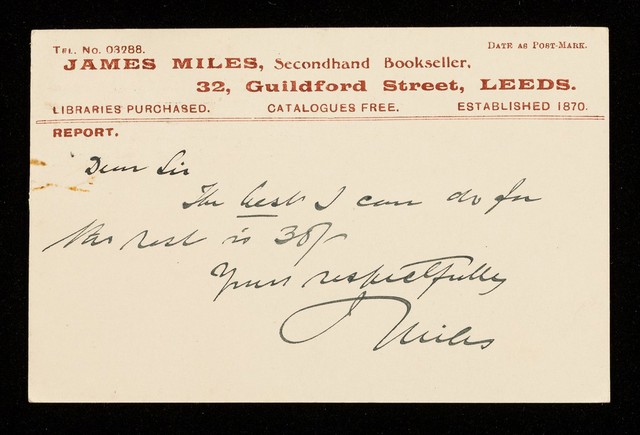 TEL. NO. 03288.
DATE AS POST-MARK.
JAMES MILES, Secondhand Bookseller,
32, Guildford Street, LEEDS.
LIBRARIES PURCHASED. CATALOGUES FREE. ESTABLISHED 1870.
REPORT.
Dear Sir
The best I can do for
the rest is 30/-
Yours respectfully
J Miles